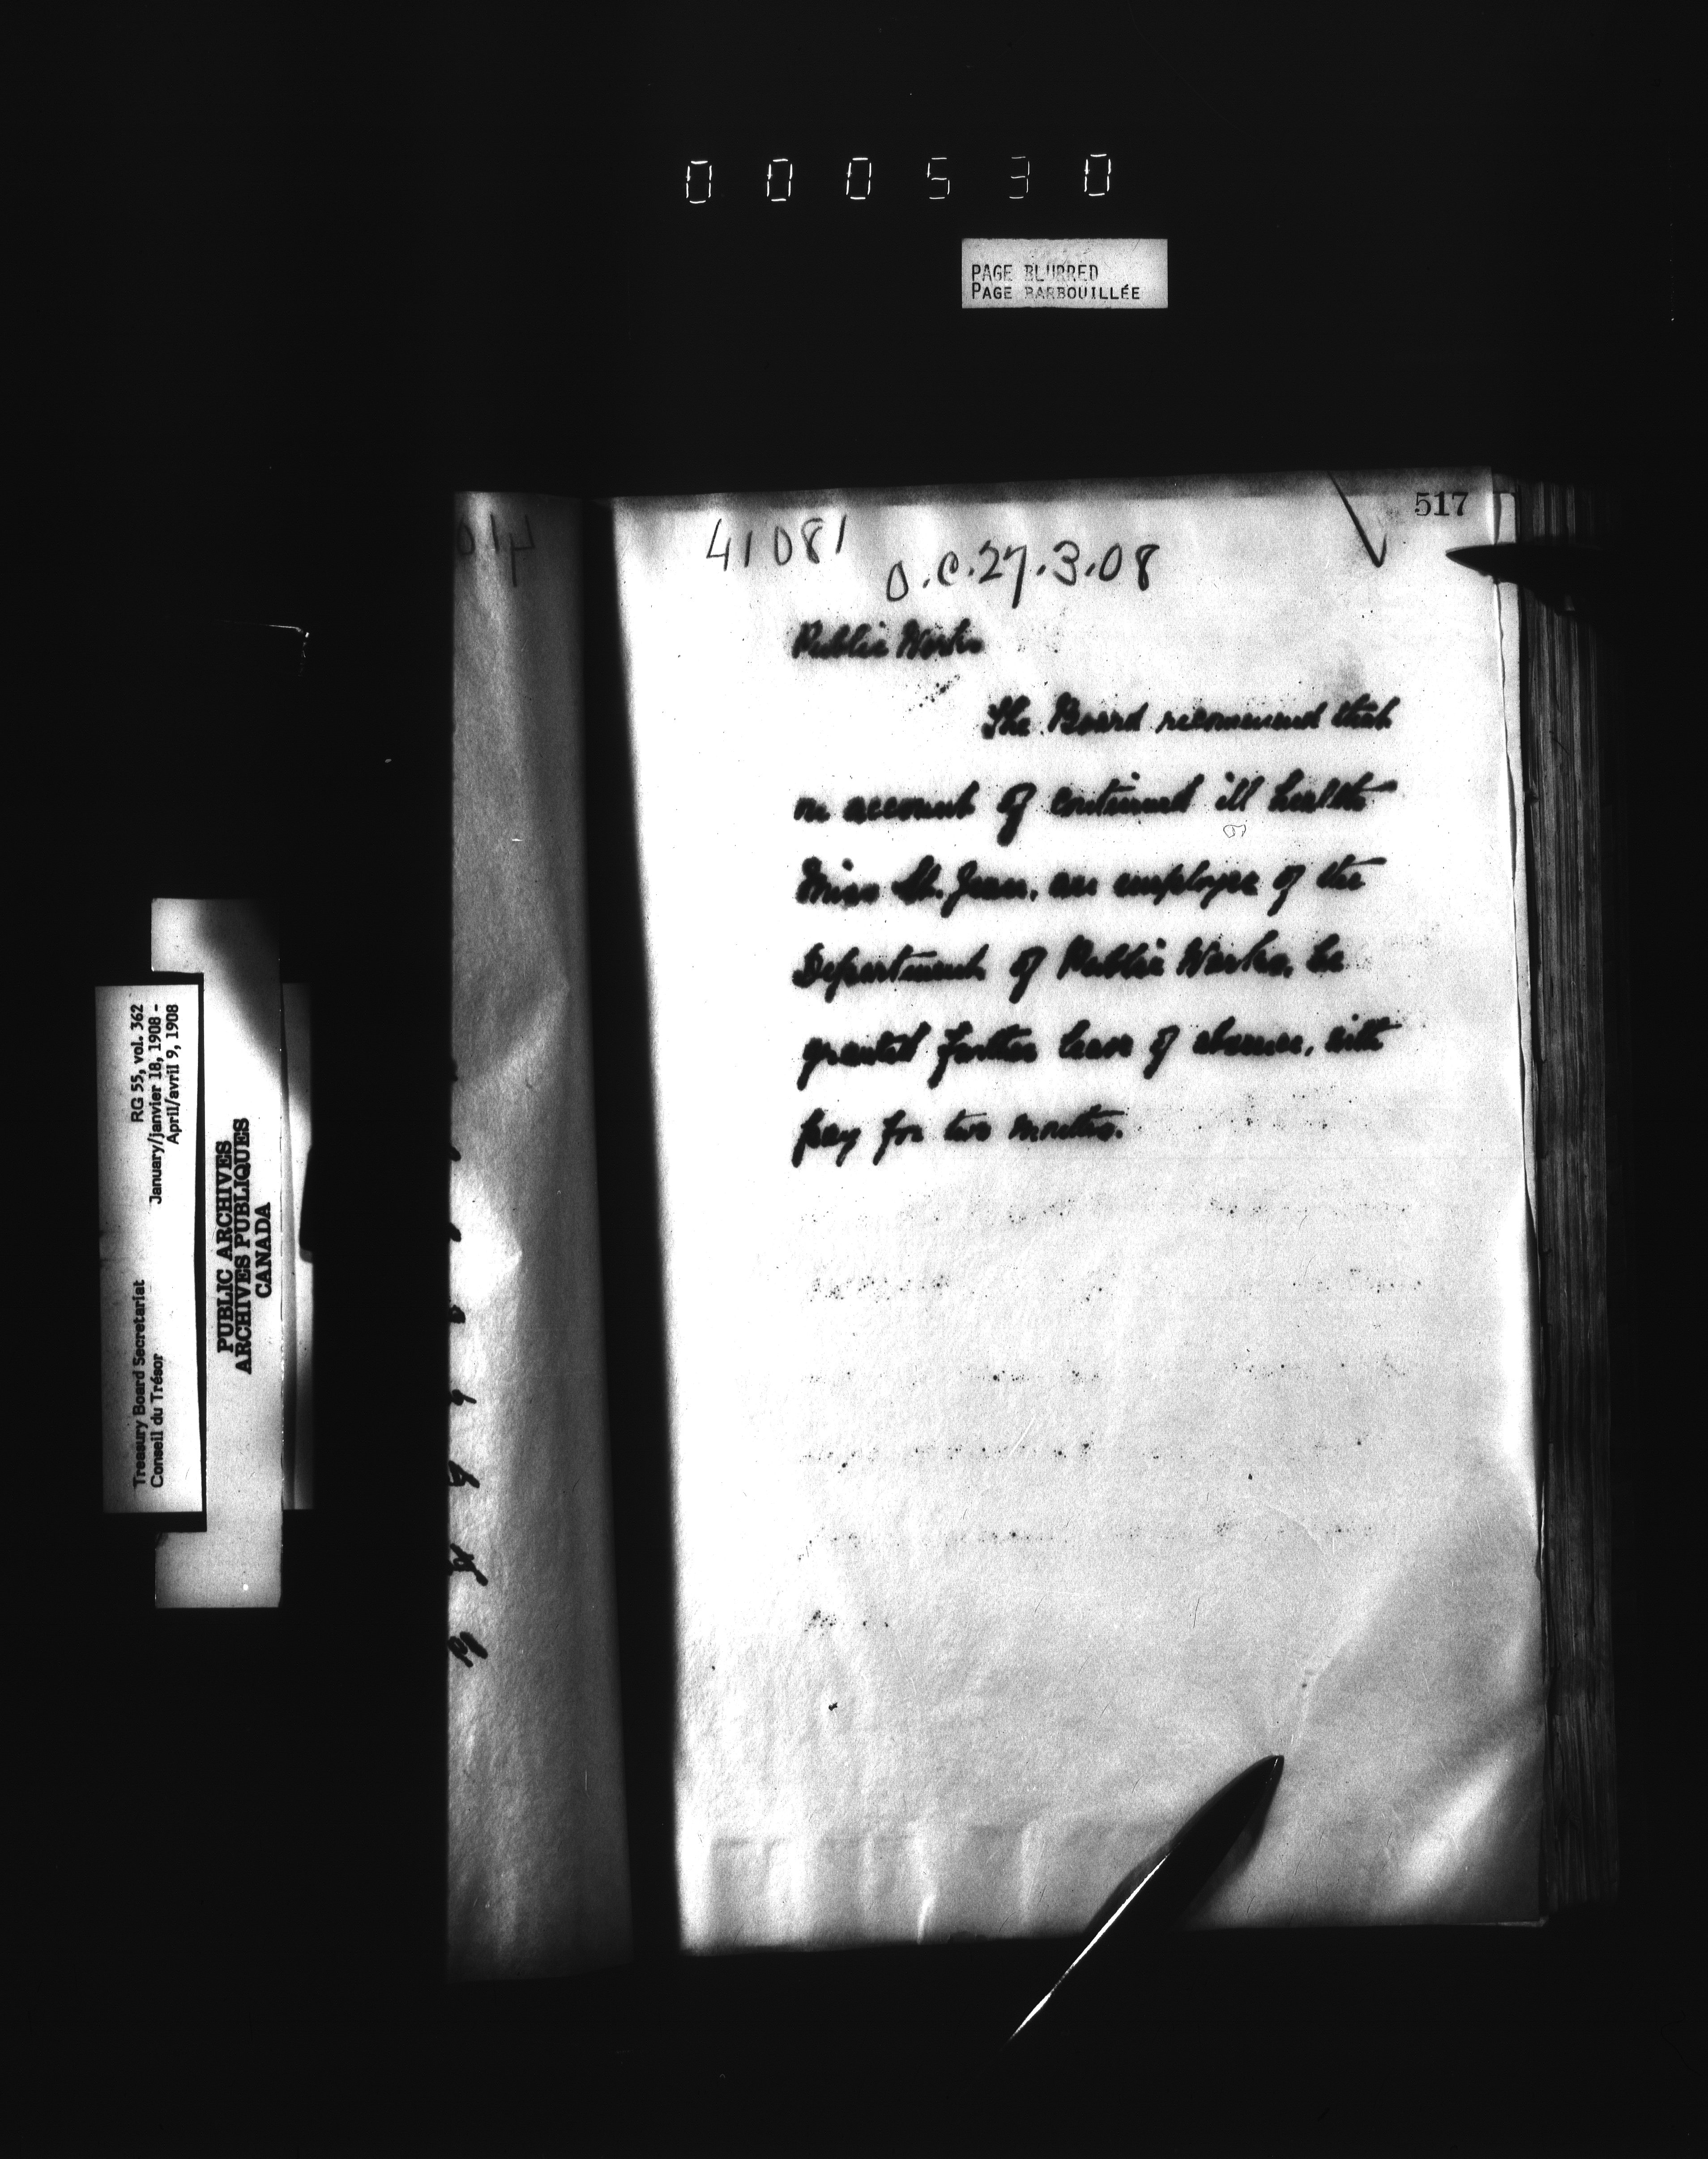 000530
PAGE BLURRED
PAGE BARBOUILLÉE
517
41081
O.C. 27.3.08
Public Works
The Board recommend that
on account of continued ill health
Miss St. Jean, an employee of the
Department of Public Works, be
granted further leave of absence, with
pay for two months.
RG 55, vol. 362
January/janvier 18, 1908 -
April/avril 9, 1908
Treasury Board Secretariat
Conseil du Trésor
PUBLIC ARCHIVES
ARCHIVES PUBLIQUES
CANADA